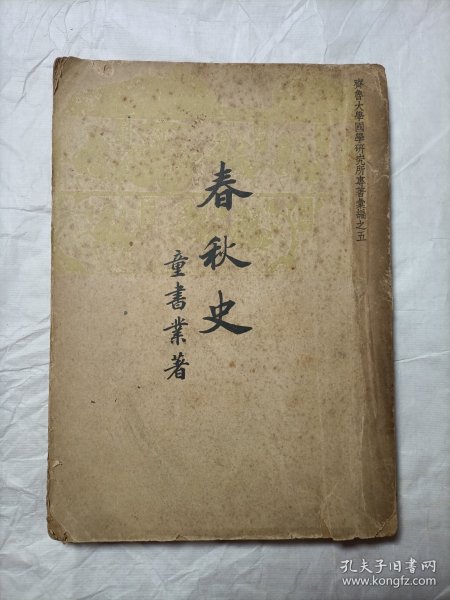 齊魯大學國學研究所專著彙編之五
春秋史
童書業著
孔夫子旧书网
www.kongfz.com